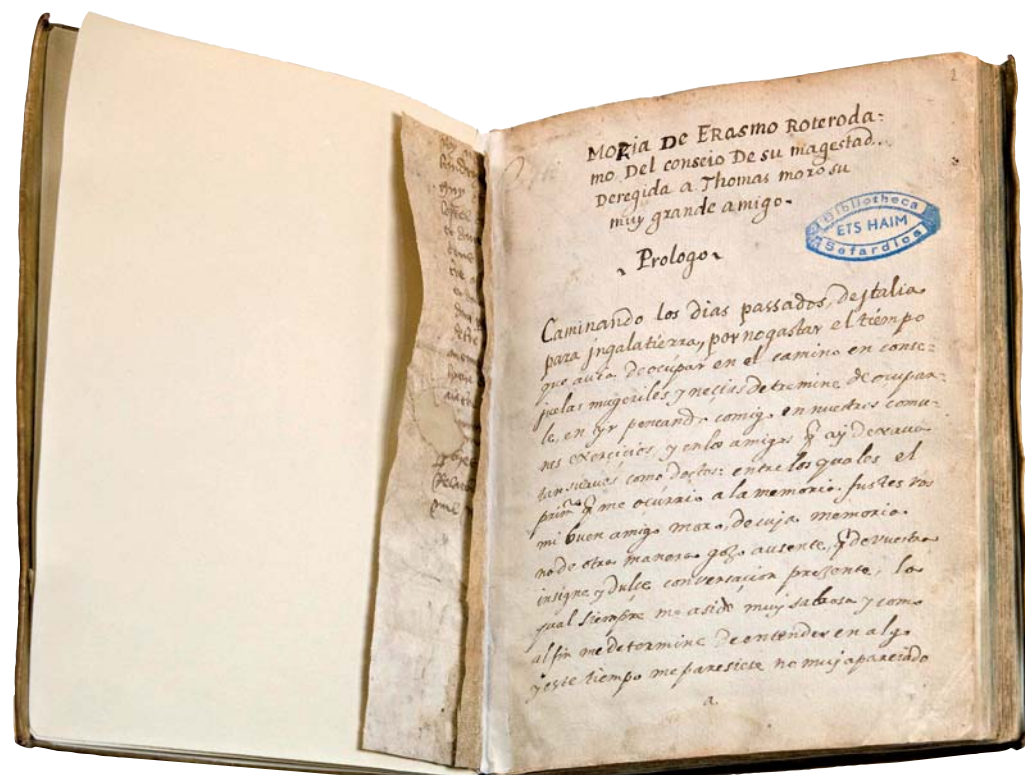 MORIA DE ERASMO ROTERODA:
mo Del conseio De su magestad..
Deregida a Thomas moro su
muy grande amigo.
Prologo
Caminando los dias passados, de jtalia
para jngalatierra, por no gastar el tiempo
que auia de ocupar en el camino en conse:
juelas mugeriles y necias detremine de ocupar:
le, en yr pensando comigo en nuestros comu:
nes exercicios, y en los amigos q̃ ay dexaua
tan suaues como doctos: entre los quales el
prim.º q̃ me ocurrio a la memoria. fustes vos
mi buen amigo moro, de cuja memoria
no de otra manera gozo ausente, q̃ de vuestra
insigne y dulce conversacion presente, la
qual siempre me asido muy sabrosa y como
al fin me determine de entender en algo
y este tiempo me paresiese no muj aparejado
a
2
Bibliotheca
ETS HAIM
Sefardica